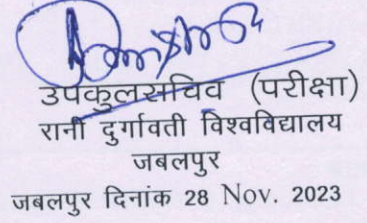 उपकुलसचिव (परीक्षा)
रानी दुर्गावती विश्वविद्यालय
जबलपुर
जबलपुर दिनांक 28 Nov. 2023